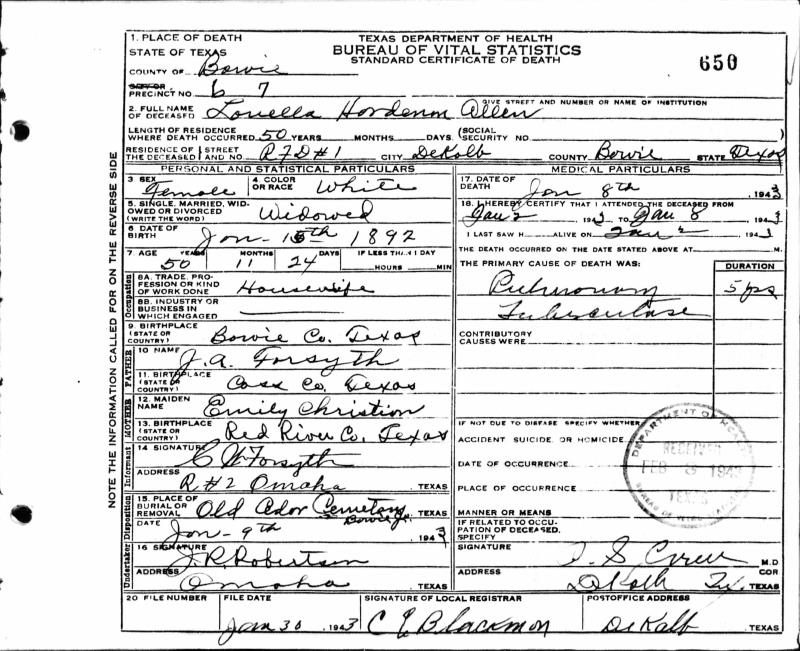 1. PLACE OF DEATH
STATE OF TEXAS
COUNTY OF Bowie
CITY OR PRECINCT NO. 6 7
TEXAS DEPARTMENT OF HEALTH
BUREAU OF VITAL STATISTICS
STANDARD CERTIFICATE OF DEATH
650
GIVE STREET AND NUMBER OR NAME OF INSTITUTION
2. FULL NAME OF DECEASED Louella Allen
LENGTH OF RESIDENCE WHERE DEATH OCCURRED 50 YEARS MONTHS DAYS (SOCIAL SECURITY NO. )
RESIDENCE OF THE DECEASED STREET AND NO. RFD #1 CITY DeKalb COUNTY Bowie STATE Texas
PERSONAL AND STATISTICAL PARTICULARS
3 SEX Female
4. COLOR OR RACE White
5. SINGLE, MARRIED, WIDOWED OR DIVORCED (WRITE THE WORD) Widowed
6 DATE OF BIRTH Jan - 15th 1892
7. AGE 50 YEARS 11 MONTHS 24 DAYS IF LESS THAN 1 DAY HOURS MIN
Occupation
8A. TRADE, PROFESSION OR KIND OF WORK DONE Housewife
8B. INDUSTRY OR BUSINESS IN WHICH ENGAGED
9. BIRTHPLACE (STATE OR COUNTRY) Bowie Co. Texas
FATHER
10 NAME J. A. Forsyth
11. BIRTHPLACE (STATE OR COUNTRY) Cass Co, Texas
MOTHER
12. MAIDEN NAME Emily Christion
13. BIRTHPLACE (STATE OR COUNTRY) Red River Co. Texas
Informant
14 SIGNATURE C W Forsyth
ADDRESS R #2 Omaha TEXAS
Disposition
15. PLACE OF BURIAL OR REMOVAL Old Cemetery Bowie TEXAS
DATE Jan - 9th 1943
Undertaker
16 SIGNATURE J. R. Robertson
ADDRESS Omaha TEXAS
MEDICAL PARTICULARS
17. DATE OF DEATH Jan 8th 1943
18. I HEREBY CERTIFY THAT I ATTENDED THE DECEASED FROM
Jan 2 1943 TO Jan 8 1943
I LAST SAW H ALIVE ON 1943
THE DEATH OCCURRED ON THE DATE STATED ABOVE AT M.
THE PRIMARY CAUSE OF DEATH WAS:
DURATION
Pulmonary 5 yrs
CONTRIBUTORY CAUSES WERE
IF NOT DUE TO DISEASE SPECIFY WHETHER
ACCIDENT SUICIDE, OR HOMICIDE
DATE OF OCCURRENCE
PLACE OF OCCURRENCE
MANNER OR MEANS
IF RELATED TO OCCUPATION OF DECEASED, SPECIFY
SIGNATURE M.D
ADDRESS DeKalb Tx. COR TEXAS
DEPARTMENT OF HEALTH
RECEIVED
FEB 8 1943
TEXAS
BUREAU OF VITAL
20 FILE NUMBER
FILE DATE Jan 30 1943
SIGNATURE OF LOCAL REGISTRAR C E Blackmon
POSTOFFICE ADDRESS DeKalb TEXAS
NOTE THE INFORMATION CALLED FOR ON THE REVERSE SIDE